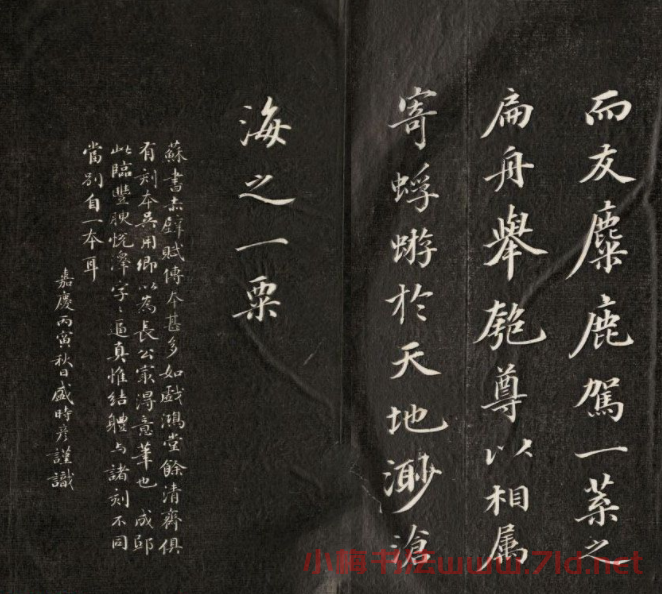 而友麋鹿駕一葉之
扁舟舉匏尊以相属
寄蜉蝣於天地渺滄
海之一粟
蘇書赤壁賦傳本甚多如戲鴻堂餘清齋俱
有刻本吴用卿以為長公家得意筆也成邸
此臨豐腴悅澤字〻逼真惟結體与諸刻不同
當別自一本耳
嘉慶丙寅秋日盛時彦謹識
www.7ld.net